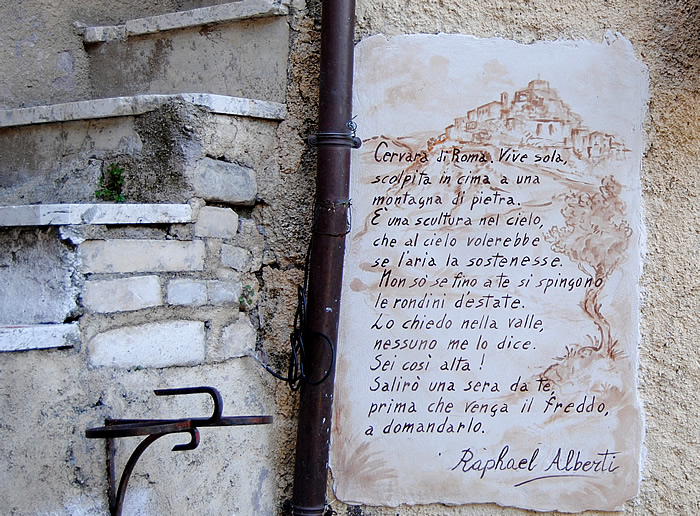 Cervara di Roma. Vive sola,
scolpita in cima a una
montagna di pietra.
È una scultura nel cielo,
che al cielo volerebbe
se l'aria la sostenesse.
Non sò se fino a te si spingono
le rondini d'estate.
Lo chiedo nella valle,
nessuno me lo dice.
Sei così alta !
Salirò una sera da te,
prima che venga il freddo,
a domandarlo.
Raphael Alberti